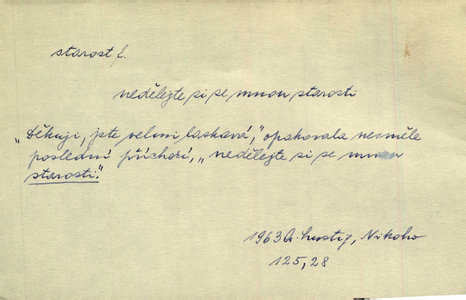 starost f.
nedělejte si se mnou starosti
„Děkuji, jste velmi laskavá,“ opakovala nesměle
poslední příchozí, „nedělejte si se mnou
starosti.“
1963 A. Lustig, Nikoho
125, 28